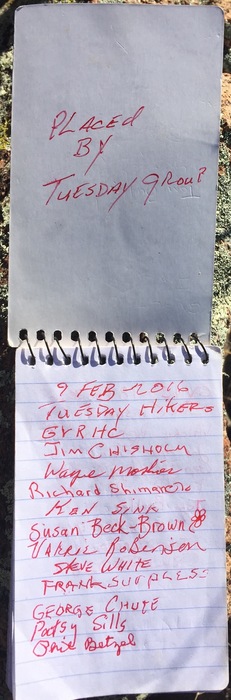 PLACED
BY
TUESDAY GROUP
9 FEB 2016
TUESDAY HIKERS
GVRHC
JIM CHISHOLM
Wayne
Richard
KEN SINK
Susan Beck-Brown
Valerie Robinson
STEVE WHITE
FRANK SURPLESS
GEORGE CHUTE
Patsy Sills
Betzel